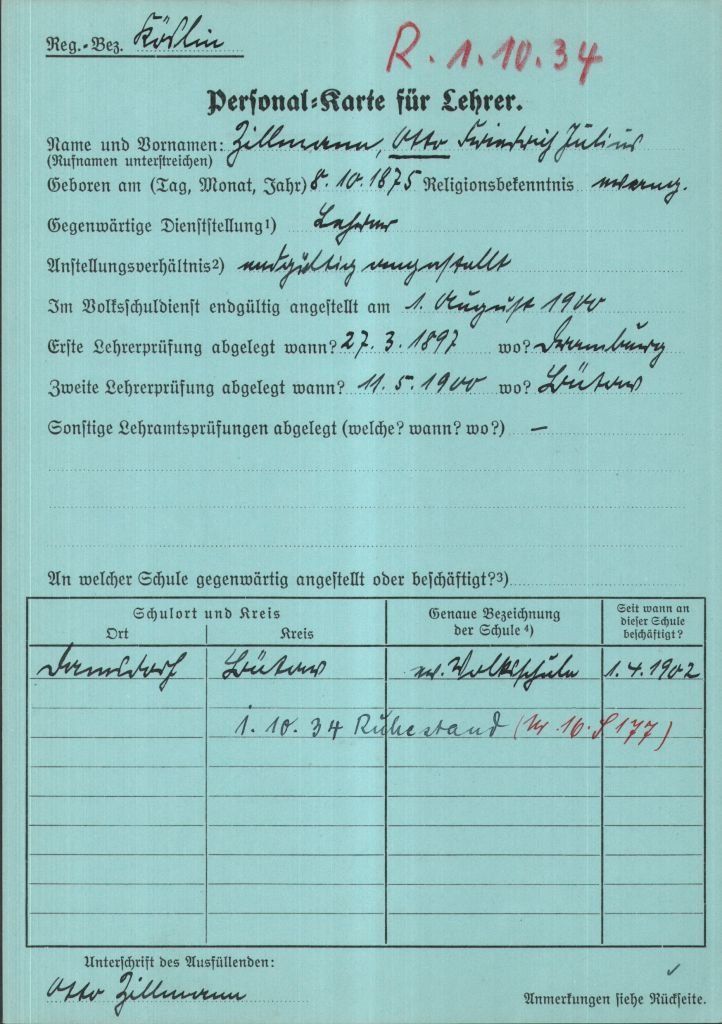 Reg.-Bez. Köslin
R. 1.10.34
Personal-Karte für Lehrer.
Name und Vornamen: Zillmann, Otto Friedrich Julius
(Rufnamen unterstreichen)
Geboren am (Tag, Monat, Jahr) 8.10.1875 Religionsbekenntnis evang.
Gegenwärtige Dienststellung1) Lehrer
Anstellungsverhältnis2) endgültig angestellt
Im Volksschuldienst endgültig angestellt am 1. August 1900
Erste Lehrerprüfung abgelegt wann? 27.3.1897 wo? Dramburg
Zweite Lehrerprüfung abgelegt wann? 11.5.1900 wo? Bütow
Sonstige Lehramtsprüfungen abgelegt (welche? wann? wo?) —
An welcher Schule gegenwärtig angestellt oder beschäftigt?3)
Schulort und Kreis
Ort Kreis
Genaue Bezeichnung
der Schule4)
Seit wann an
dieser Schule
beschäftigt?
Damsdorf Bütow ev. Volksschule 1.4.1902
1.10.34 Ruhestand (Nr. 16. S 177)
Unterschrift des Ausfüllenden:
Otto Zillmann
Anmerkungen siehe Rückseite.